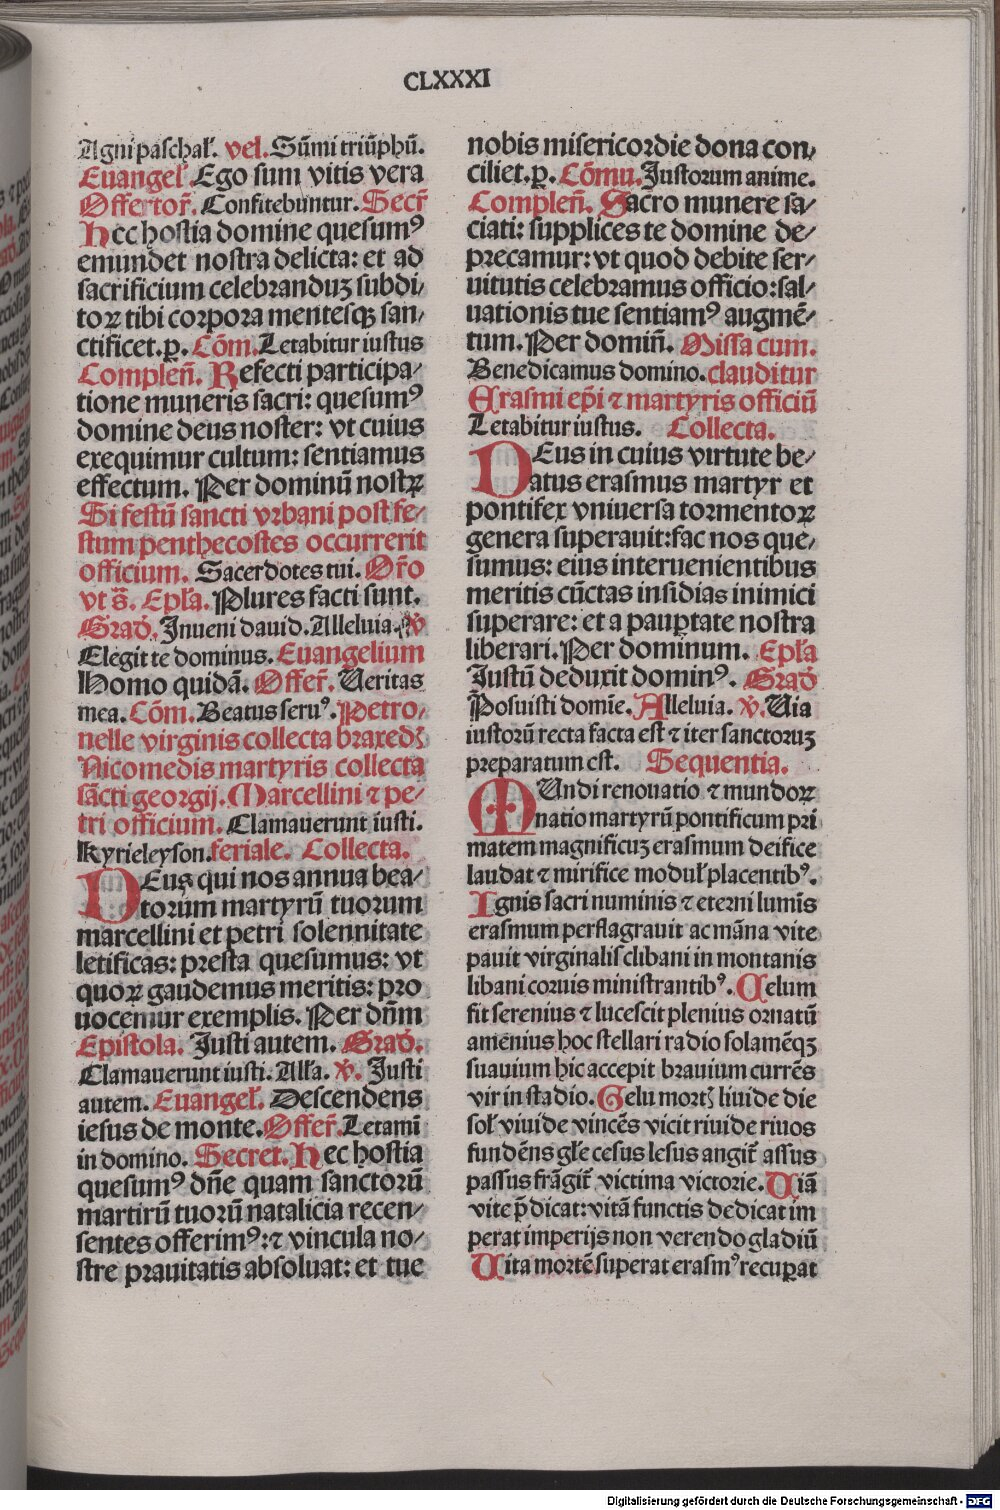 CLXXXI
Agni paſchał. vel. Sūmi triūphū.
Euangeł Ego ſum vitis vera
Offertoꝛ̄. Confitebuntur. Secꝛ̄
Hec hoſtia domine queſumꝰ
emundet noſtra delicta: et ad
ſacrificium celebranduꝫ ſubdi⸗
toꝝ tibi coꝛpoꝛa mentesqꝫ ſan⸗
ctificet. p. Cōm. Letabitur iuſtus
Complen̄. Refecti participa⸗
tione muneris ſacri: queſumꝰ
domine deus noſter: vt cuius
exequimur cultum: ſentiamus
effectum. Per dominū noſtꝝ
Si feſtū ſancti vꝛbani poſt fe⸗
ſtum penthecoſtes occurrerit
officium. Sacerdotes tui. Oꝛ̄o
vt s̄. Epła. Plures facti ſunt.
Grad̄. Inueni dauid. Alleluia. v̄
Elegit te dominus. Euangelium
Homo quidā. Offeꝛ̄. Ueritas
mea. Cōm. Beatus ſeruꝰ. Petro⸗
nelle virginis collecta braxedꝭ
Nicomedis martyris collecta
ſācti georgij. Marcellini ⁊ pe⸗
tri officium. Clamauerunt iuſti.
Kyrieleyſon. feriale. Collecta.
DEus qui nos annua bea⸗
toꝛum martyrū tuoꝛum
marcellini et petri ſolennitate
letificas: preſta queſumus: vt
quoꝝ gaudemus meritis: pꝛo
uocemur exemplis. Per dn̄m
Epiſtola. Iuſti autem. Grad̄.
Clamauerunt iuſti. Ałła. v̄. Iuſti
autem. Euangeł. Deſcendens
ieſus de monte. Offeꝛ̄. Letami
in domino. Secret. Hec hoſtia
queſumꝰ dn̄e quam ſanctoꝛū
martirū tuoꝛū natalicia recen⸗
ſentes offerimꝰ: ⁊ vincula no⸗
ſtre pꝛauitatis abſoluat: et tue
nobis miſericoꝛdie dona con⸗
ciliet. p. Cōmu. Iuſtoꝛum anime.
Complen̄. Sacro munere ſa⸗
ciati: ſupplices te domine de⸗
precamur: vt quod debite ſer⸗
uitutis celebramus officio: ſal⸗
uationis tue ſentiamꝰ augmē⸗
tum. Per domin̄. Miſſa cum.
Benedicamus domino. clauditur
Eraſmi ep̄i ⁊ martyris officiū
Letabitur iuſtus. Collecta.
DEus in cuius virtute be⸗
atus eraſmus martyr et
pontifex vniuerſa toꝛmentoꝝ
genera ſuperauit: fac nos que⸗
ſumus: eius interuenientibus
meritis cūctas inſidias inimici
ſuperare: et a pauꝑtate noſtra
liberari. Per dominum. Epła
Iuſtū deduxit dominꝰ. Grad̄
Poſuiſti domīe. Alleluia. v̄. Uia
iuſtoꝛū recta facta eſt ⁊ iter ſanctoꝛuꝫ
preparatum eſt. Sequentia.
MUndi renouatio ⁊ mundoꝝ
natio martyrū pontificum pꝛi
matem magnificuꝫ eraſmum deifice
laudat ⁊ mirifice moduł placentibꝰ.
Ignis ſacri numinis ⁊ eterni lumīs
eraſmum perflagrauit ac māna vite
pauit virginalis clibani in montanis
libani coꝛuis miniſtrantibꝰ. Celum
fit ſerenius ⁊ luceſcit plenius oꝛnatū
amenius hoc ſtellari radio ſolamēqꝫ
ſuauium hic accepit brauium currēs
vir in ſtadio. Gelu moꝛtꝭ liuide die
soł viuide vincēs vicit riuide riuos
fundēns głe ceſus leſus angit̄ aſſus
paſſus frāgit̄ victima victoꝛie. Uiā
vite p̄dicat: vitā functis dedicat im
perat imperijs non verendo gladiū
Uita moꝛtē ſuperat eraſmꝰ recuꝑat
Digitalisierung gefördert durch die Deutsche Forschungsgemeinschaft - DFG